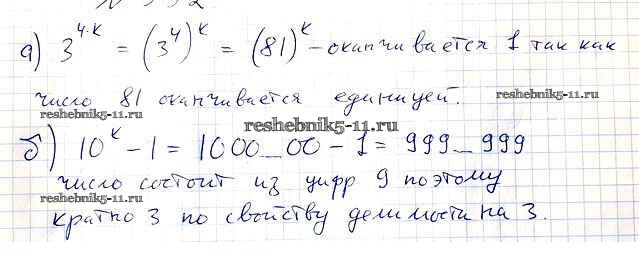 а) 3^{4·k} = (3^4)^k = (81)^k – оканчивается 1 так как
число 81 оканчивается единицей.
reshebnik5-11.ru
reshebnik5-11.ru
reshebnik5-11.ru
б) 10^k - 1 = 1000_00 - 1 = 999_999
число состоит из цифр 9 поэтому
reshebnik5-11.ru
кратно 3 по свойству делимости на 3.